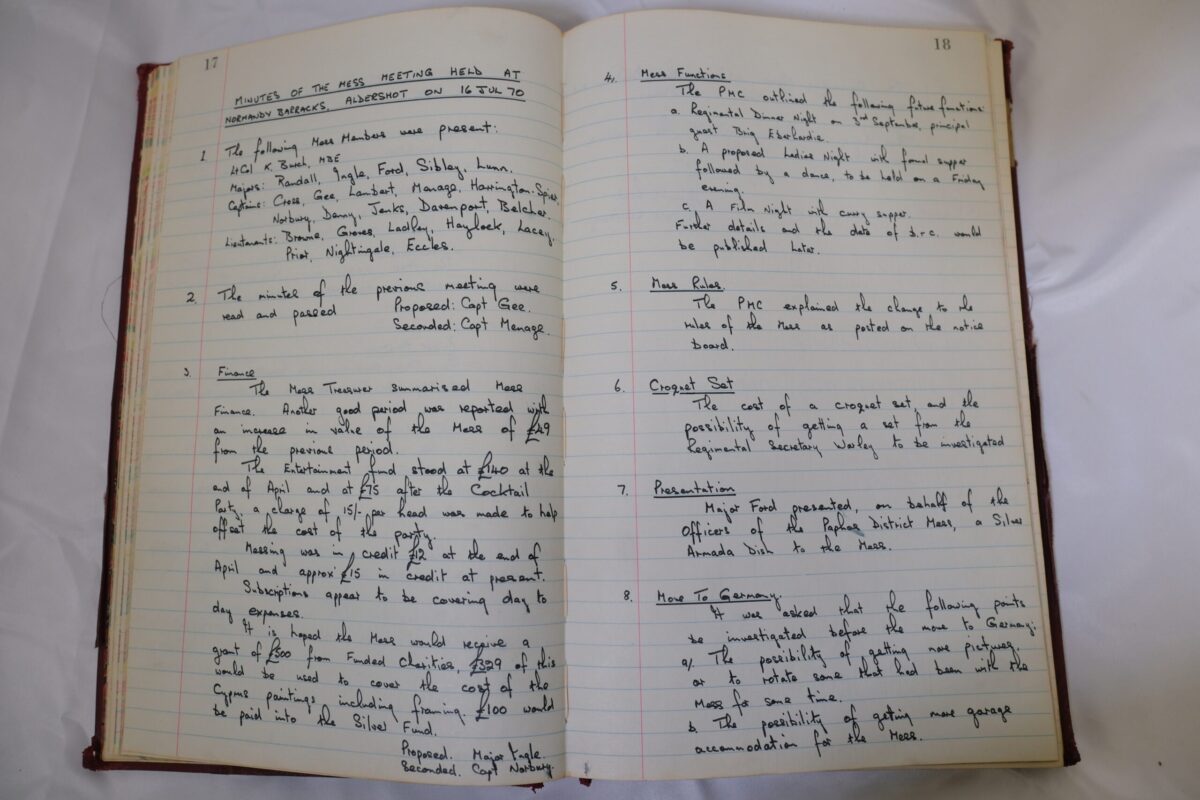 17
MINUTES OF THE MESS MEETING HELD AT
NORMANDY BARRACKS, ALDERSHOT ON 16 JUL 70
1 The following Mess Members were present:
Lt Col K. Burch, MBE
Majors: Randall, Ingle, Ford, Sibley, Lunn.
Captains: Cross, Gee, Lambert, Menage, Harrington-Spier,
Norbury, Danny, Jenks, Davenport, Belcher.
Lieutenants: Browne, Groves, Ladley, Haylock, Lacey,
Prior, Nightingale, Eccles.
2. The minutes of the previous meeting were
read and passed Proposed: Capt Gee.
Seconded: Capt Menage.
3. Finance
The Mess Treasurer summarised Mess
Finance. Another good period was reported with
an increase in value of the Mess of £49
from the previous period.
The Entertainment fund stood at £140 at the
end of April and at £75 after the Cocktail
Party, a charge of 15/- per head was made to help
offset the cost of the party.
Messing was in credit £12 at the end of
April and approx £15 in credit at present.
Subscriptions appear to be covering day to
day expenses.
It is hoped the Mess would receive a
grant of £500 from Funded Charities, £329 of this
would be used to cover the cost of the
Cyprus paintings including framing. £100 would
be paid into the Silver Fund.
Proposed. Major Ingle.
Seconded. Capt Norbury.
18
4. Mess Functions
The PMC outlined the following future functions:
a. Regimental Dinner Night on 3rd September, principal
guest Brig Eberhardie.
b. A proposed Ladies Night with formal supper
followed by a dance, to be held on a Friday
evening.
c. A Film Night with curry supper.
Further details and the date of b.-c. would
be published later.
5. Mess Rules.
The PMC explained the change to the
rules of the Mess as posted on the notice
board.
6 Croquet Set
The cost of a croquet set, and the
possibility of getting a set from the
Regimental Secretary Worley to be investigated
7. Presentation
Major Ford presented, on behalf of the
Officers of the Paphos District Mess, a Silver
Armada Dish to the Mess.
8. Move To Germany.
It was asked that the following points
be investigated before the move to Germany:
a/. The possibility of getting more pictures,
or to rotate some that had been with the
Mess for some time.
b. The possibility of getting more garage
accommodation for the Mess.